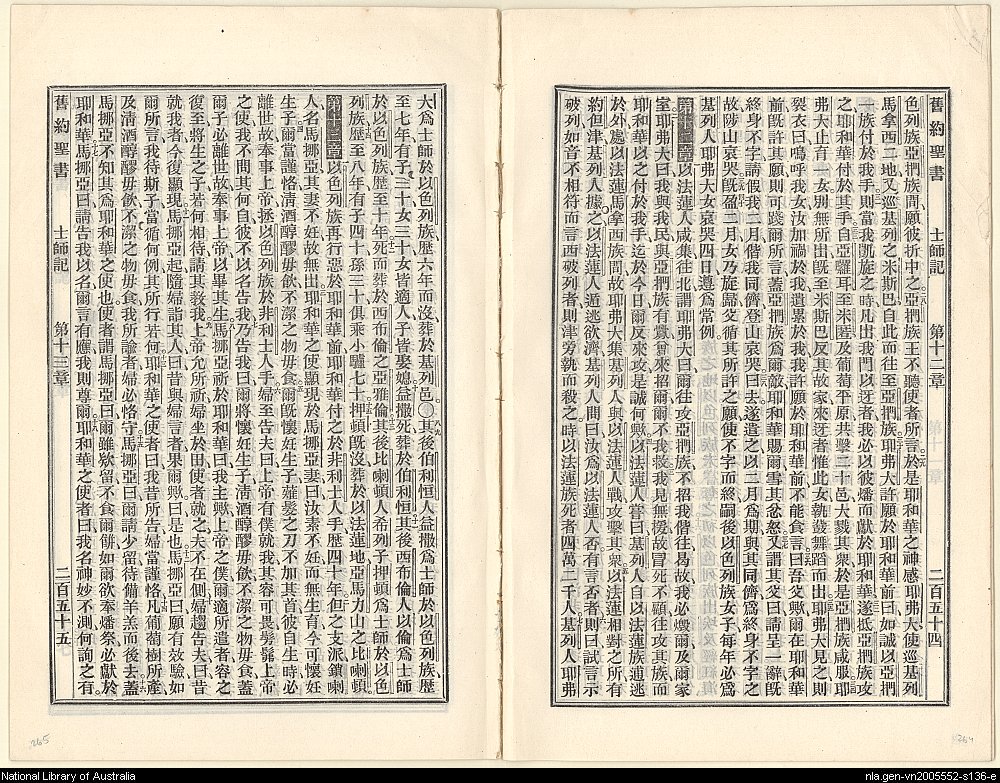 舊約聖書 士師記 第十二章 二百五十四
色列族亞捫族間願彼折中之亞捫族王不聽使者所言於是耶和華之神感耶弗大使巡基列
馬拿西二地又巡基列之米斯巴自此而往至亞捫族耶弗大許願於耶和華前曰如誠以亞捫
一族付於我手則當我凱旋之時凡出我門以迓者我必以彼燔而獻於耶和華遂抵亞捫族攻
之耶和華付於其手自亞囉耳至米匿及葡萄平原共擊二十邑大戮其衆於是亞捫族咸服耶
弗大止育一女別無所出旣至米斯巴反其故家來迓者惟此女執鼗舞蹈而出耶弗大見之則
裂衣曰嗚呼我女汝加禍於我遺累於我我許願於耶和華前不能食言曰吾父歟爾在耶和華
前旣許其願則可踐爾所言蓋亞捫族爲爾敵耶和華賜爾雪其忿怒又謂其父曰請呈一辭旣
終身不字請假我二月偕我同儕登山哀哭曰去遂遣之以二月爲期與其同儕爲終身不字之
故陟山哀哭旣盈二月女乃旋歸父循其所許之願使不字而終嗣後以色列族女子每年必爲
基列人耶弗大女哀哭四日遵爲常例
第十二章 以法蓮人咸集往北謂耶弗大曰爾往攻亞捫族不招我偕往曷故我必燬爾及爾家
室耶弗大曰我與我民與亞捫族有釁嘗來招爾爾不我救我見無援故冒死不顧往攻其族而
耶和華付之於我手迄於今日爾反來攻是誠何歟耶弗大集基列人與以法蓮人戰攻擊其衆以法蓮人嘗曰基列人自以法蓮遁逃
於外處以法蓮馬拿西族間故耶弗大集基列人與以法蓮人戰攻擊其衆以法蓮相對之所有
約但津基列人據之以法蓮人遁逃欲濟基列人問曰汝爲以法蓮人否有言否者則曰試言示
破列如音不相符而言西破列者則津旁執而殺之時以法蓮族死者四萬二千人基列人耶弗
大爲士師於以色列族歷六年而沒葬於基列邑其後伯利恒人益撒爲士師於以色列族歷
至七年有子三十女三十女皆適人子皆娶媳益撒死葬於伯利恒其後西布倫人以倫爲士師
於以色列族歷至十年死而葬於西布倫之亞雅倫其後比喇頓人希列子押頓爲士師於以色
列族歷至八年有子四十孫三十俱乘小驢七十押頓旣沒葬於以法蓮地亞馬力山之比喇頓
第十三章 以色列族再行惡於耶和華前耶和華付之於非利士人手歷四十年但之支派鎖喇
人名馬挪亞其妻不妊故無出耶和華之使顯現於馬挪亞妻曰汝素不妊而無生育今可懷妊
生子爾當謹恪淸酒醇醪毋飲不潔之物毋食爾旣懷妊生子薙髮之刀不加其首彼自生時必
離世故奉事上帝拯以色列族於非利士人手婦至告夫曰上帝有僕就我其容可畏髣髴上帝
之使我不問其何自彼不以名告我乃告我曰爾將懷妊生子淸酒醇醪毋飲不潔之物毋食蓋
爾子必離世故奉事上帝以畢其生馬挪亞祈於耶和華曰我主歟上帝之僕爾適所遣者容之
復至將生之子若何相待請其敎我上帝允所祈婦坐於田使者就之夫不在側婦趨告夫曰昔
就我者今復顯現馬挪亞起隨婦詣其人曰昔與婦言者果爾歟曰是也馬挪亞曰願有效驗如
爾所言我待斯子當循何例其所行若何耶和華之使者曰我昔所告婦當謹恪凡葡萄樹所產
及淸酒醇醪毋飲不潔之物毋食我所諭者婦必恪守馬挪亞曰爾請少留待備羊羔而後去蓋
馬挪亞不知其爲耶和華之使也使者謂馬挪亞曰爾雖欵留不食爾餅如爾欲奉燔祭必獻於
耶和華馬挪亞曰請告我以名爾言有應我則尊爾耶和華之使者曰我名神妙不測何詢之有
舊約聖書 士師記 第十三章 二百五十五
265
264
National Library of Australia
nla.gen-vn2005552-s136-e